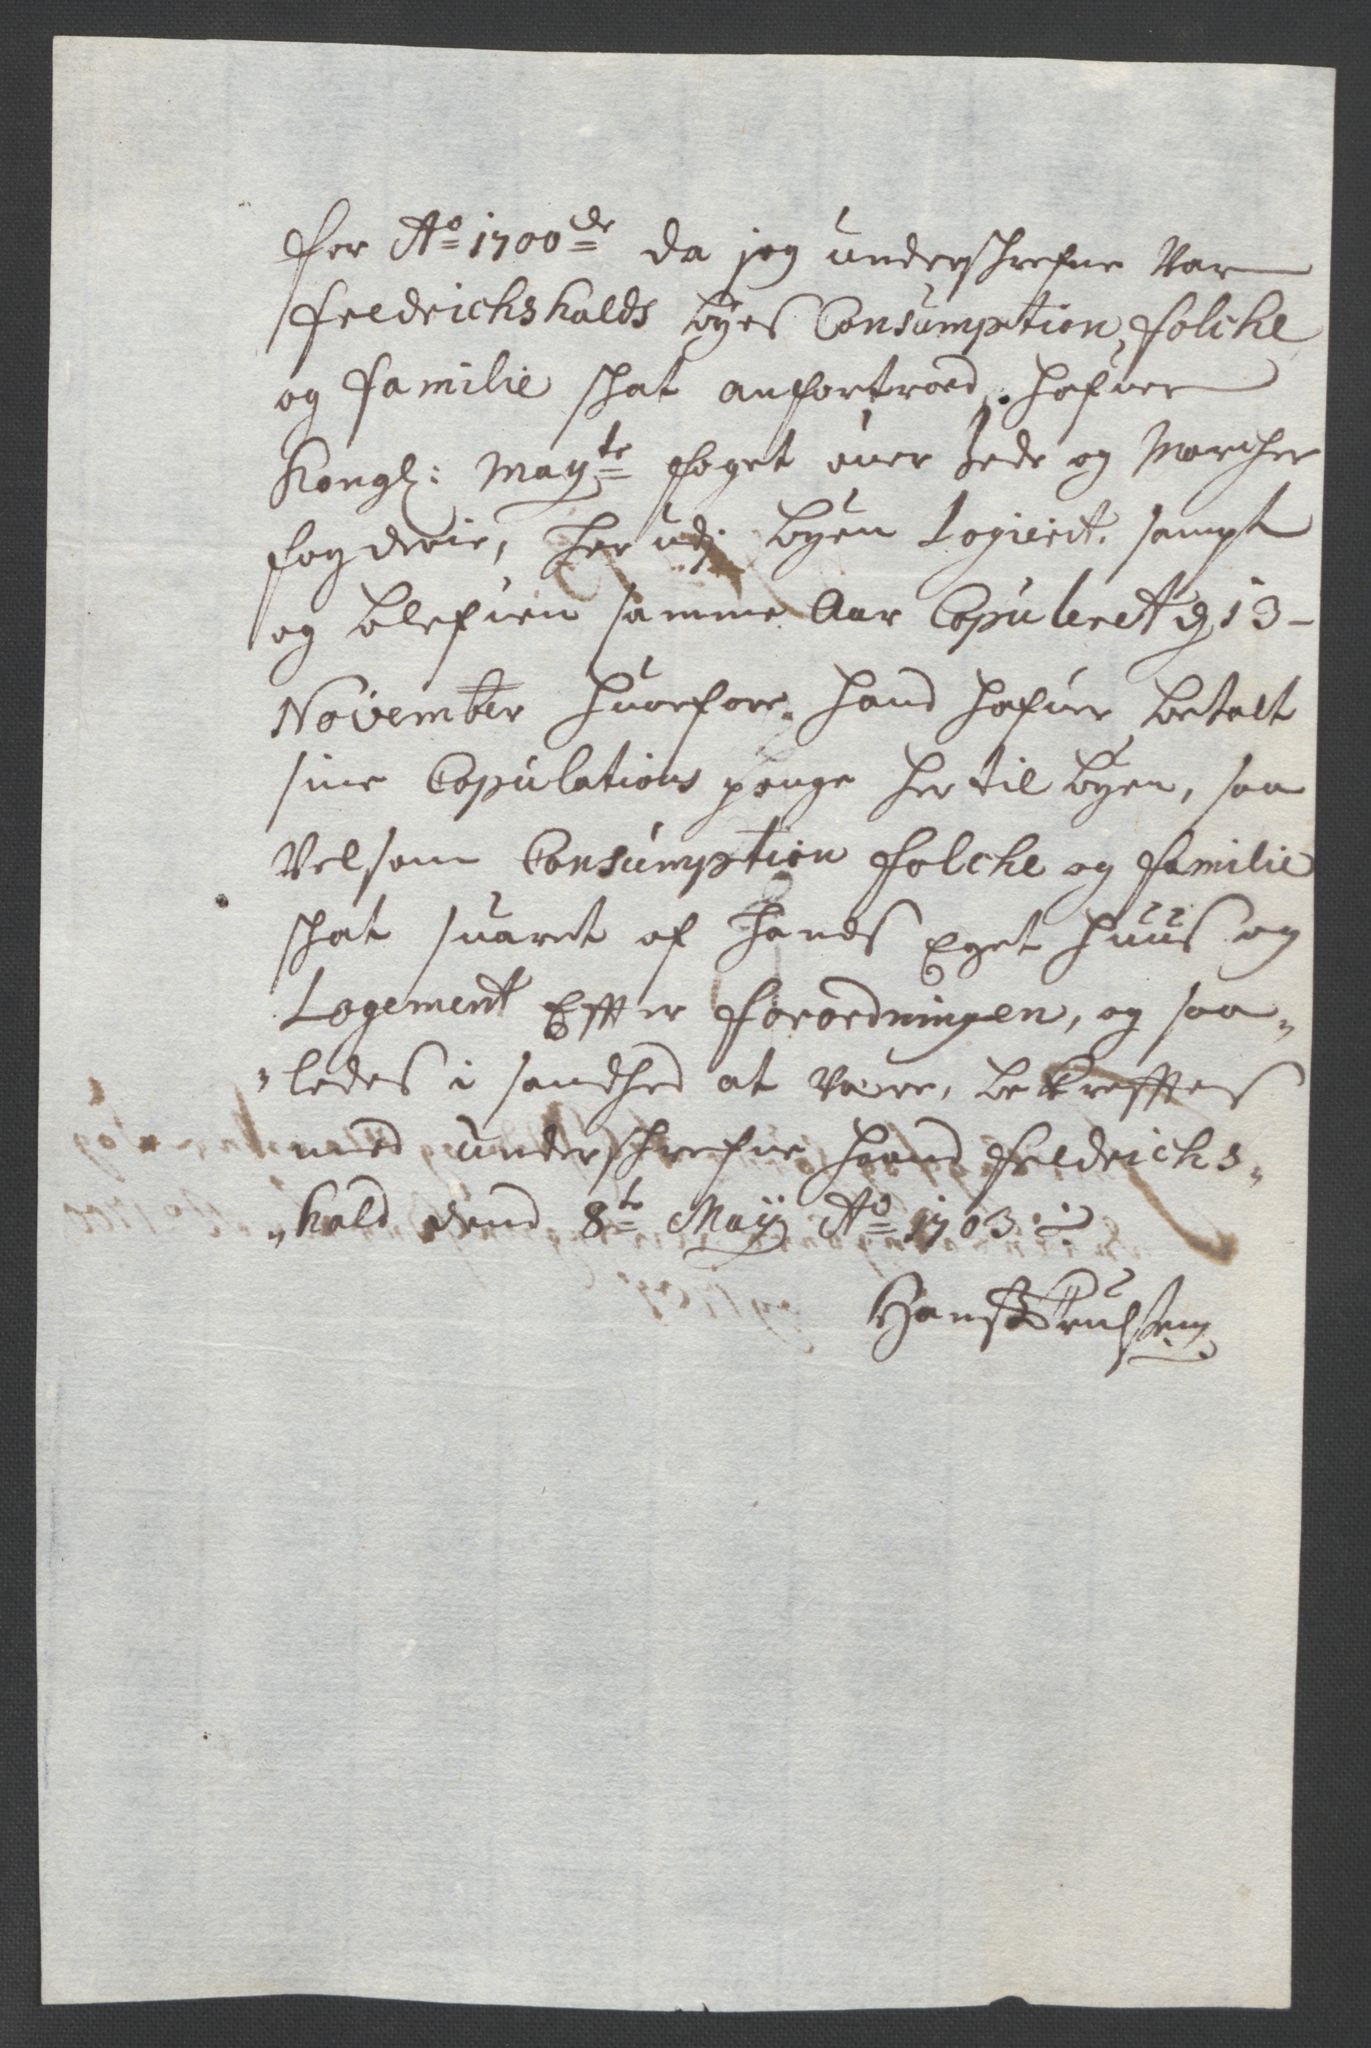 for Ao 1700de da jeg underschrefne Var
fredrichshalds byes Consumption, folche
og familie schat anfortroed, hafuer
Kongl: Mayte foget ofuer Jede og Marcher
fogderie, her udj byen Logierit, sampt
og blefuen samme Aar Copuleret d 13 -
November huorfore hand hafuer betalt
sine Copulations penge her til byen, saa
Velsom Consumption folche og familie
schat suaret af hands Eget huus og
Logement Effter forordningen, og saa„
„ledes i sandhed at Være, bekrefftes
med underschrefne haand fredrichs„
„hald dend 8te Maij Ao 1703
Hans Trulsen